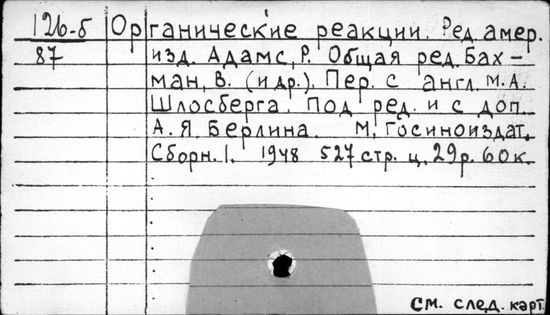 126-б Органические реакции. Ред. амер.
87 изд. Адамс, Р. Общая ред. Бах-
ман, В. (и др.). Пер. с англ. М.А.
Шлосберга. Под ред. и с доп.
А.Я. Берлина. М, Госиноиздат.
Сборн. 1. 1948 527 стр. ц. 29р. 60к.
См. след. карт.